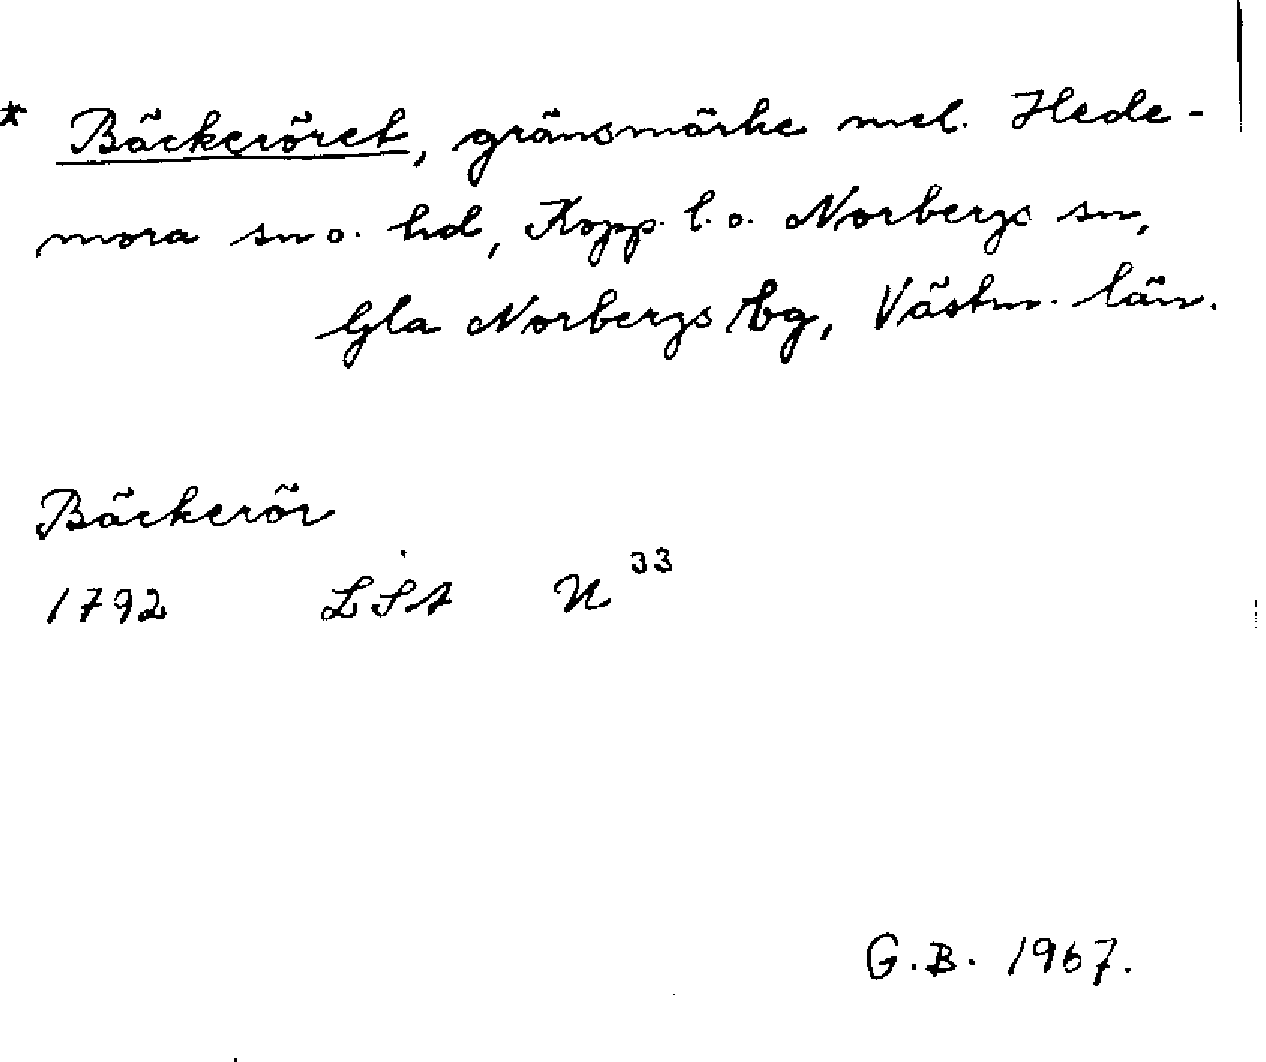 * Bäckeröret, gränsmärke mel. Hede-
mora sn o. hd, Kopp. l. o. Norbergs sn,
Gla Norbergs bg, Västm. län.
Bäckerör
1792 LSA U 33
G.B. 1967.